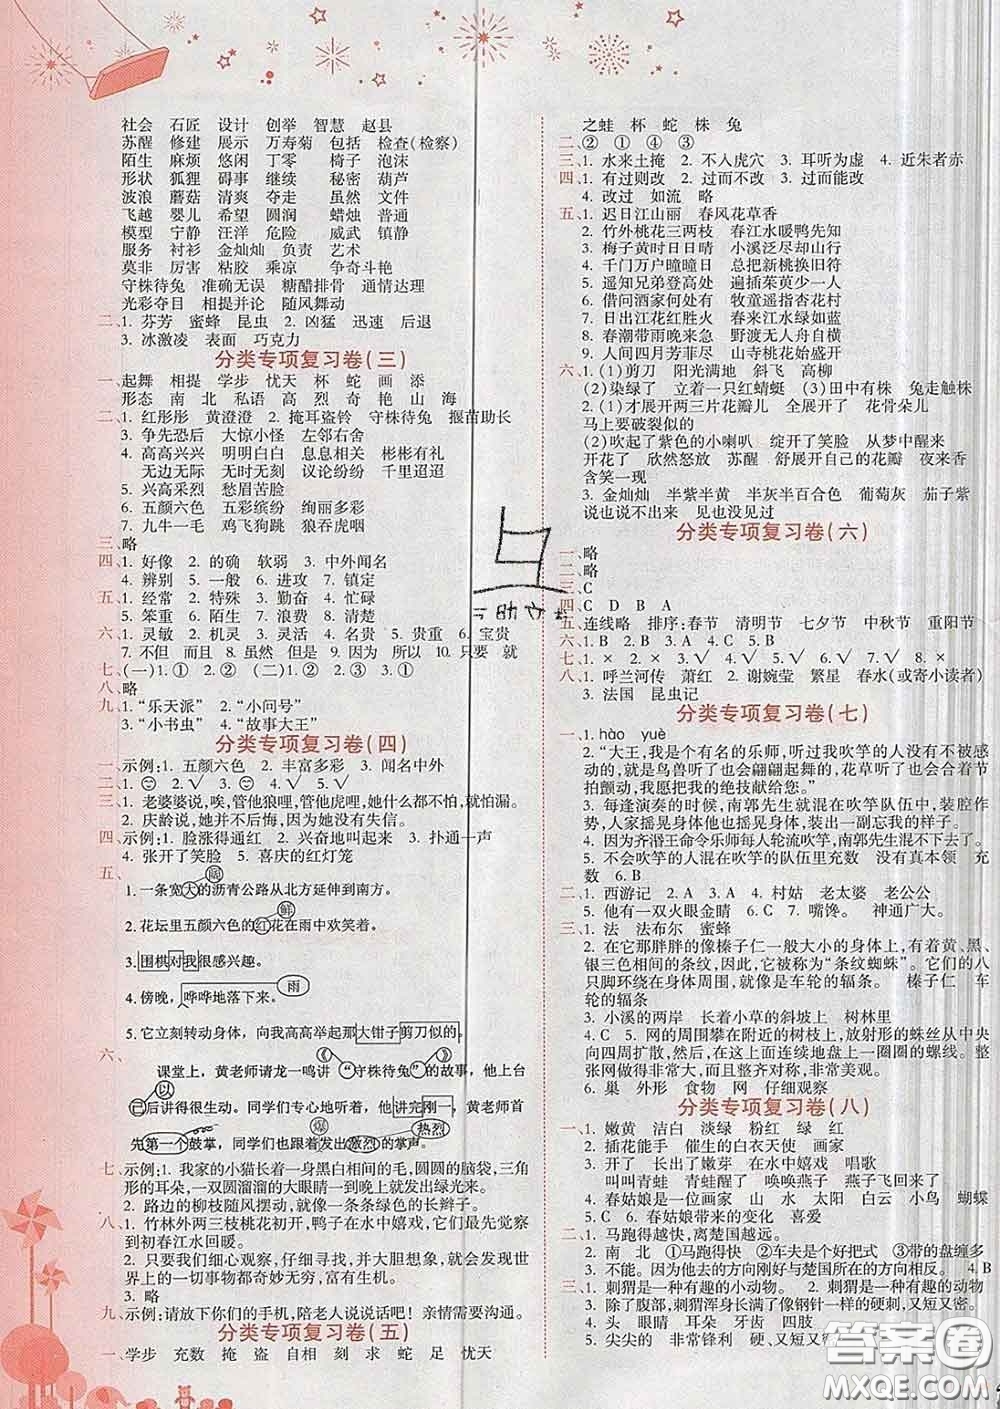 社会 石匠 设计 创举 智慧 赵县
苏醒 修建 展示 万寿菊 包括 检查(检察)
陌生 麻烦 悠闲 丁零 椅子 泡沫
形状 狐狸 碍事 继续 秘密 葫芦
波浪 蘑菇 清爽 夺走 虽然 尽管
飞越 婴儿 希望 圆润 蜡烛 普通
模型 宁静 汪洋 危险 威武 镇静
服务 衬衫 金灿灿 负责 艺术
莫非 厉害 粘胶 乘凉 争奇斗艳
守株待兔 准确无误 糖醋排骨 通情达理
光彩夺目 相提并论 随风舞动
二、1. 芬芳 蜜蜂 昆虫 2. 凶猛 迅速 后退
3. 冰激凌 表面 巧克力
分类专项复习卷(三)
一、起舞 相提 学步 忧天 杯 蛇 画 添
形态 南 北 私语 高 烈 奇 奇 山 海
二、1. 红彤彤 黄澄澄 2. 掩耳盗铃 守株待兔 揠苗助长
3. 争先恐后 大惊小怪 左邻右舍
4. 高高兴兴 明明白白 息息相关 彬彬有礼
无边无际 无时无刻 议论纷纷 千里迢迢
5. 兴高采烈 愁眉苦脸
6. 五颜六色 五彩缤纷 绚丽多彩
7. 九牛一毛 鸡飞狗跳 狼吞虎咽
三、略
四、1. 好像 2. 的确 软弱 3. 中外闻名
4. 辨别 5. 一般 6. 进攻 7. 镇定
五、1. 经常 2. 特殊 3. 勤奋 4. 忙碌
5. 笨重 6. 陌生 7. 浪费 8. 清楚
六、1. 灵敏 2. 机灵 3. 灵活 4. 名贵 5. 贵重 6. 宝贵
7. 不但 而且 8. 虽然 但是 9. 因为 所以 10. 只要 就
七、(一)1. ① 2. ② (二)1. ② 2. ①
八、略
九、1. “乐天派” 2. “小问号”
3. “小书虫” 4. “故事大王”
分类专项复习卷(四)
一、示例:1. 五颜六色 2. 丰富多彩 3. 闻名中外
二、1. 2. √ 3. 4. √ 5. √
三、1. 老婆婆说,唉,管他狼哩,管他虎哩,她什么都不怕,就怕漏。
2. 庆龄说,她不后悔,因为她没有失信。
四、示例:1. 脸涨得通红 2. 兴奋地叫起来 3. 扑通一声
4. 张开了笑脸 5. 喜庆的红灯笼
五、
1. 一条宽大的沥青公路从北方延伸到南方。
阔
2. 花坛里五颜六色的红花在雨中欢笑着。
鲜
3. 围棋对我很感兴趣。
4. 傍晚,哗哗地落下来。
雨
5. 它立刻转动身体,向我高高举起那大钳子剪刀似的。
六、
课堂上,黄老师请龙一鸣讲《“守株待兔》的故事,他上台
以
已后讲得很生动。同学们专心地听着,他讲完刚一,黄老师首
爆 热烈
先第一个鼓掌,同学们也跟着发出激烈的掌声。
七、示例:1. 我家的小猫长着一身黑白相间的毛,圆圆的脑袋,三角
形的耳朵,一双圆溜溜的大眼睛一到晚上就发出绿光来。
2. 路边的柳枝随风摆动,就像一条条绿色的长辫子。
八、1. 竹林外两三枝桃花初开,鸭子在水中嬉戏,它们最先觉察
到初春江水回暖。
2. 只要我们细心观察,仔细寻找,并大胆想象,就会发现世
界上的一切事物都奇妙无穷,富有生机。
3. 略
九、示例:请放下你们的手机,陪老人说说话吧! 亲情需要沟通。
分类专项复习卷(五)
一、学步 充数 掩 盗 自相 刻 求 蛇 足 忧天
之蛙 杯 蛇 株 兔
二、② ① ④ ③
三、1. 水来土掩 2. 不入虎穴 3. 耳听为虚 4. 近朱者赤
四、1. 有过则改 2. 过而不改 3. 过而能改
4. 改过 如流 略
五、1. 迟日江山丽 春风花草香
2. 竹外桃花三两枝 春江水暖鸭先知
3. 梅子黄时日日晴 小溪泛尽却山行
4. 千门万户曈曈日 总把新桃换旧符
5. 遥知兄弟登高处 遍插茱萸少一人
6. 借问酒家何处有 牧童遥指杏花村
7. 日出江花红胜火 春来江水绿如蓝
8. 春潮带雨晚来急 野渡无人舟自横
9. 人间四月芳菲尽 山寺桃花始盛开
六、1. (1)剪刀 阳光满地 斜飞 高柳
(2)染绿了 立着一只红蜻蜓 (3)田中有株 兔走触株
2. (1)才展开两三片花瓣儿 全展开了 花骨朵儿
马上要破裂似的
(2)吹起了紫色的小喇叭 绽开了笑脸 从梦中醒来
开花了 欣然怒放 苏醒 舒展开自己的花瓣 夜来香
含笑一现
3. 金灿灿 半紫半黄 半灰半百合色 葡萄灰 茄子紫
说也说不出来 见也没见过
分类专项复习卷(六)
一、略
二、略
三、C
四、C D B A
五、连线略 排序:春节 清明节 七夕节 中秋节 重阳节
六、1. B 2. B 3. A 4. C 5. B
七、1. × 2. × 3. √ 4. √ 5. √ 6. √ 7. √ 8. ×
八、1. 呼兰河传 萧红 2. 谢婉莹 繁星 春水(或寄小读者)
3. 法国 昆虫记
分类专项复习卷(七)
一、1. hào yuè
2. “大王,我是个有名的乐师,听过我吹竽的人没有不被感
动的,就是鸟兽听了也会翩翩起舞的,花草听了也会合着节
拍颤动,我愿把我的绝技献给您。”
3. 每逢演奏的时候,南郭先生就混在吹竽队伍中,装腔作
势,人家摇晃身体他也摇晃身体,做出一副忘我的样子。
4. 因为齐湣王命令乐师每人轮流吹竽,南郭先生混不下去了。
5. 不会吹竽的人混在吹竽的队伍里充数 没有真本领 充
数 6. B
二、1. 西游记 2. A 3. A 4. 村姑 老太婆 老公公
5. 他有一双火眼金睛 6. C 7. 嘴馋。 神通广大。
三、1. 法 法布尔 蜜蜂
2. 在它那胖胖的像榛子仁一般大小的身体上,有着黄、黑、
银三色相间的条纹,因此,它被称为“条纹蜘蛛”。它们的八
只脚环绕在身体周围,就像是车轮的辐条。 榛子仁 车
轮的辐条
3. 小溪的两岸 长着小草的斜坡上 树林里
4. C 5. 网的周围攀在附近的树枝上,放射形的蛛丝从中央
向四周扩散,然后,在这上面连续地盘上一圈圈的螺线。整张
网做得非常大,而且整齐对称,非常美观。
6. 巢 外形 食物 网 仔细观察
分类专项复习卷(八)
一、1. 嫩黄 洁白 淡绿 粉红 绿 红
2. 插花能手 催生的白衣天使 画家
3. 开了 长出了嫩芽 在水中嬉戏 唱歌
叫叫青蛙 青蛙醒了 唤唤燕子 燕子飞回来了
4. 春姑娘是一位画家 山 水 太阳 白云 小鸟 蝴蝶
5. C 6. 春姑娘带来的变化 喜爱
二、1. 马跑得越快,离楚国越远。
2. 南 北 ①马跑得快 ②车夫是个好把式 ③带的盘缠多
3. 不能。因为去的方向刚好与楚国所在的方向相反。
三、1. 刺猬是一种有趣的小动物。 2. 刺猬是一种有趣的动物
3. 除了腹部,刺猬身上都是像钢针一样的硬刺,又短又密
4. 头 眼睛 耳朵 牙齿 四肢
5. 尖尖的 非常锋利 硬、又短又密
答案圈
MXQE.COM